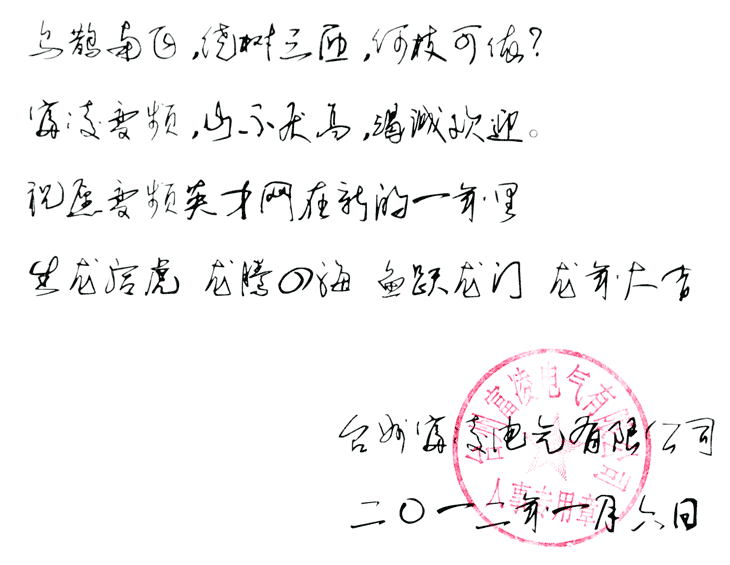 乌鹊南飞,绕树三匝,何枝可依?
富凌变频,山不厌高,竭诚欢迎。
祝愿变频英才网在新的一年里
生龙活虎 龙腾四海 鱼跃龙门 龙年大吉
台州富凌电气有限公司
二〇一二年一月六日
台州富凌电气有限公司
人事专用章